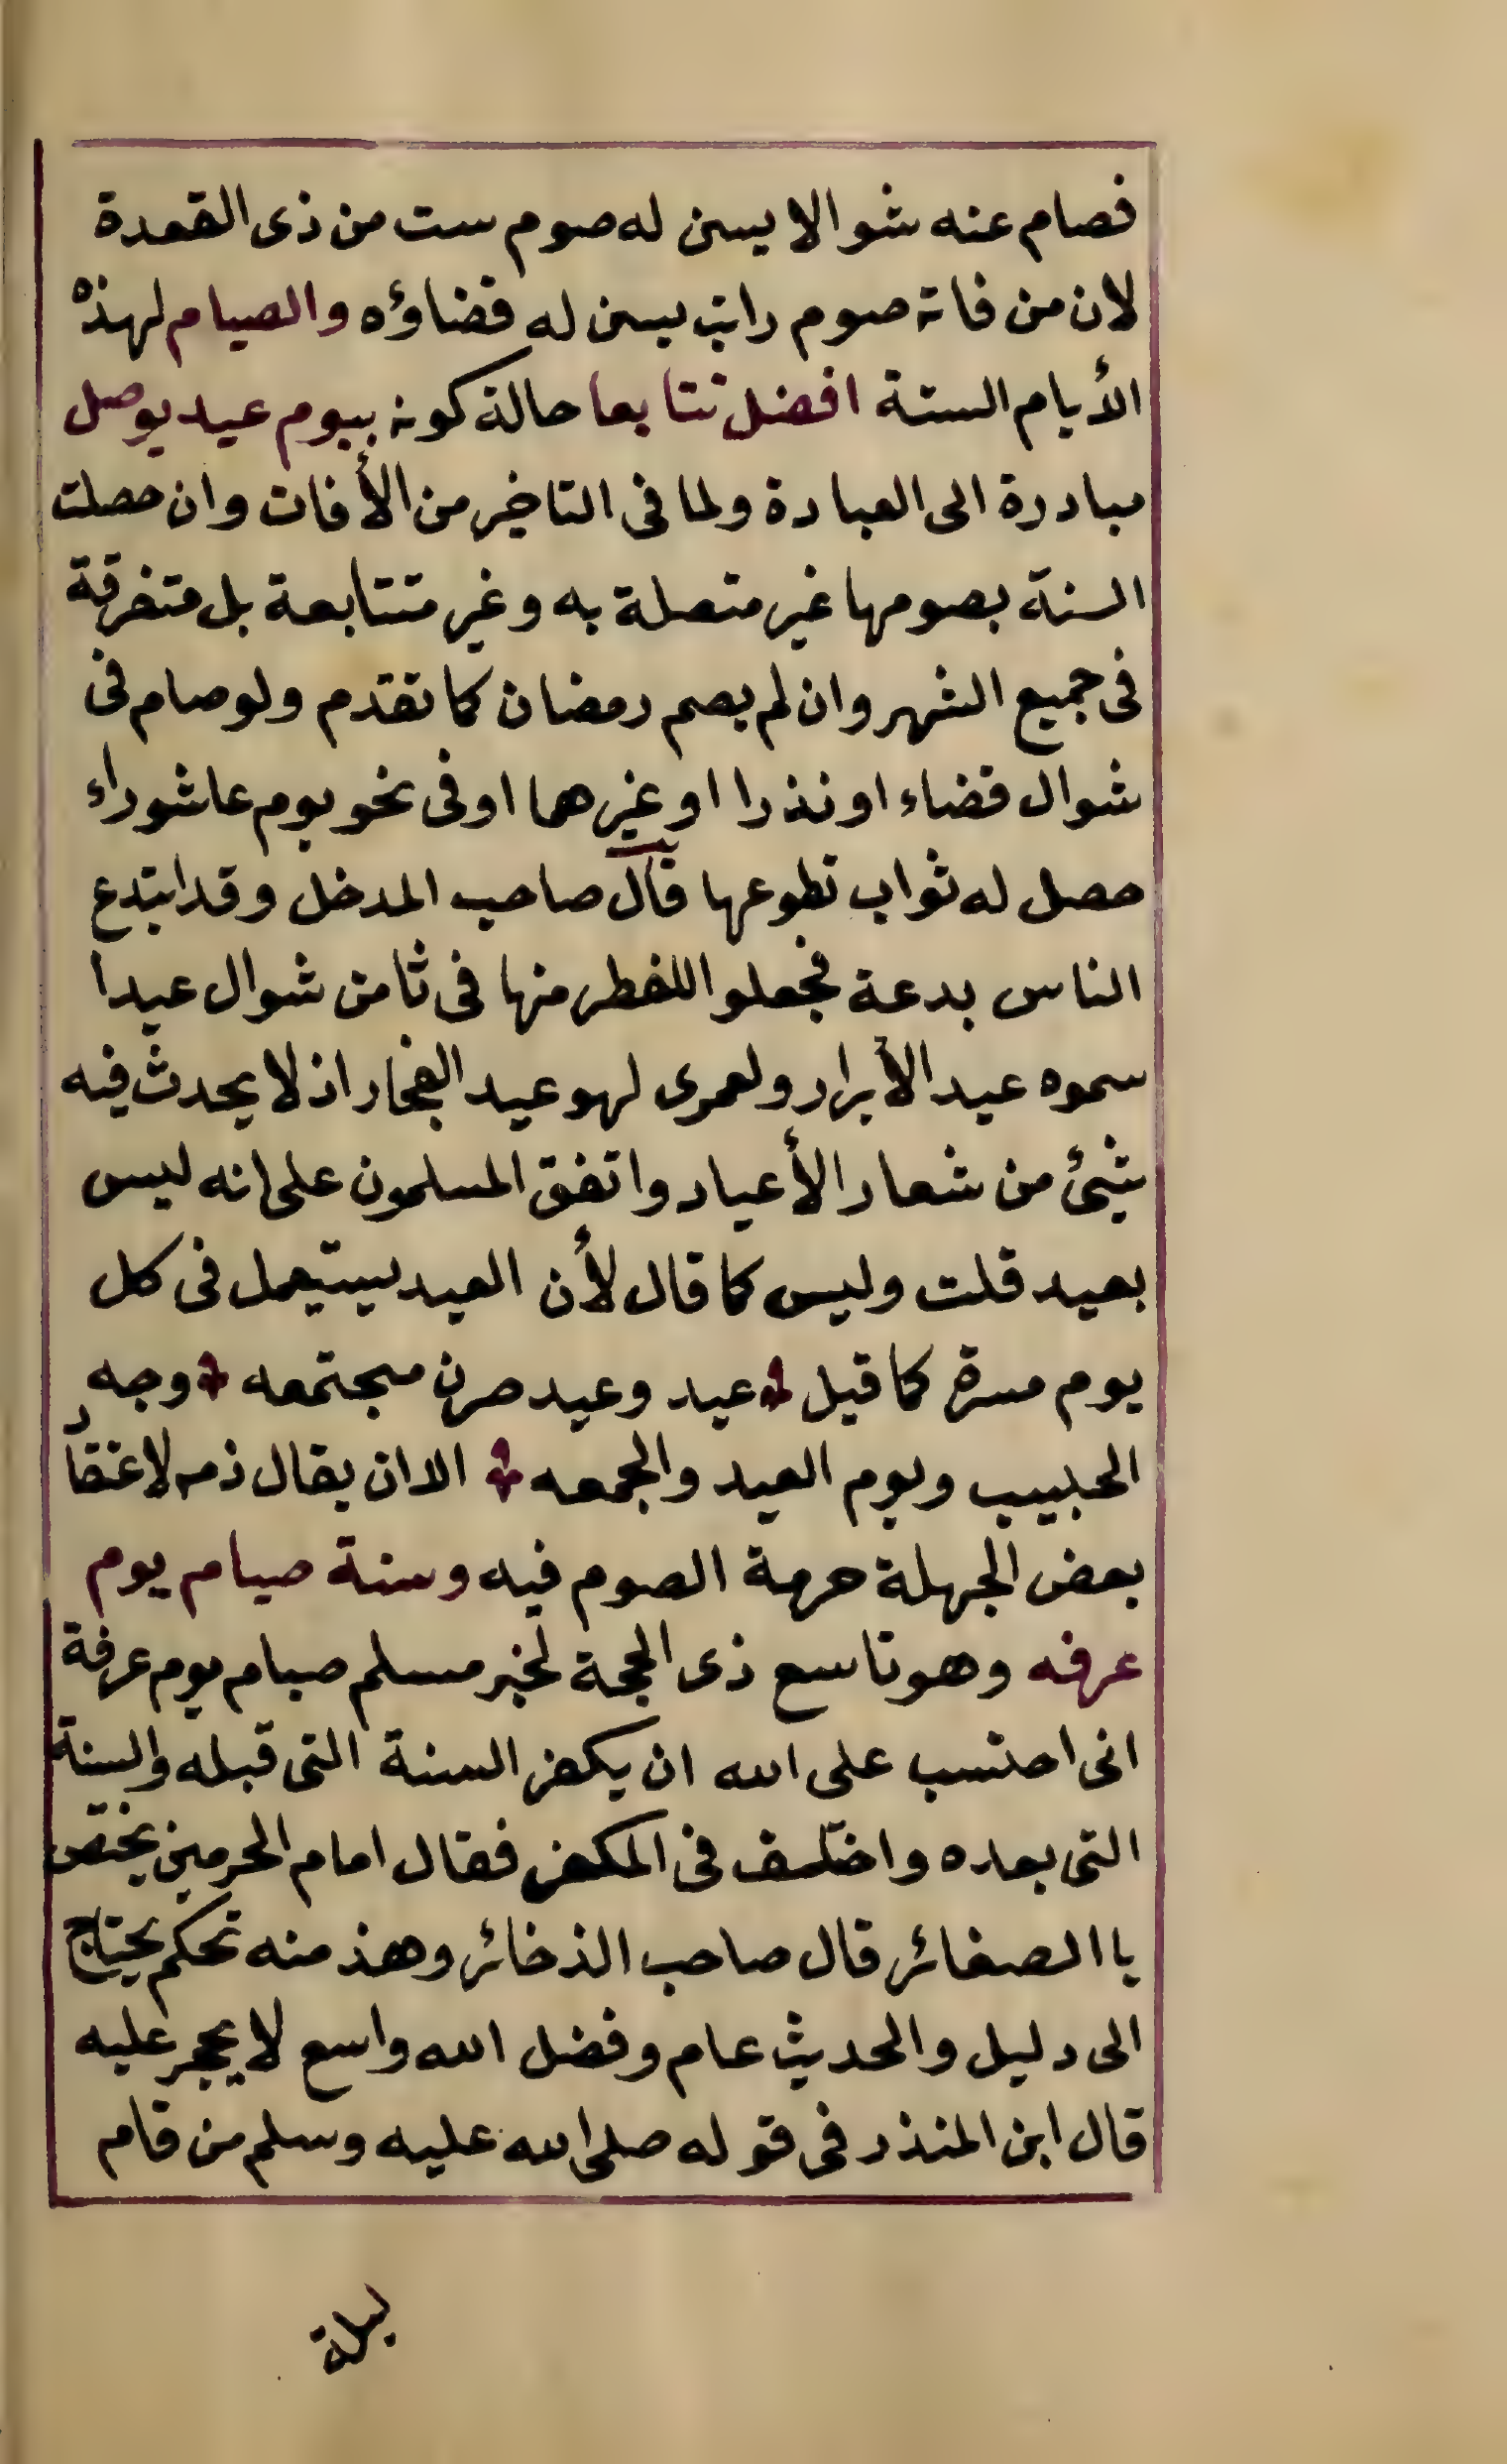 فصام عنه شوالا يسن له صوم ست من ذى القعدة
لان من فاته صوم راتب يسن له قضاؤه والصيام لهذه
الأيام الستة افضل تتابعا حالة كونه بيوم عيد يوصل
مبادرة الى العبادة ولما فى التاخير من الأفات وان حصلت
السنة بصومها غير متصلة به وغير متتابعة بل متفرقة
فى جميع الشهر وان لم يصم رمضان كما تقدم ولو صام فى
شوال قضاء او نذرا او غيرهما او فى نحو يوم عاشوراء
حصل له ثواب تطوعها قال صاحب المدخل وقد ابتدع
الناس بدعة فجعلوا اللفطر منها فى ثامن شوال عيدا
سموه عيد الأبرار ولعمرى لهو عيد الفجار اذ لا يحدث فيه
شئ من شعار الأعياد واتفق المسلمون على انه ليس
بعيد قلت وليس كما قال لأن العيد يستعمل فى كل
يوم مسرة كما قيل عيد وعيد صرن مجتمعه وجه
الحبيب ويوم العيد والجمعه الا ان يقال ذمه لاعتقاد
بعض الجهلة حرمة الصوم فيه وسنة صيام يوم
عرفه وهو تاسع ذى الحجة لخبر مسلم صيام يوم عرفة
انى احتسب على الله ان يكفر السنة التى قبله والسنة
التى بعده واختلف فى المكفر فقال امام الحرمين يختص
باالصغائر قال صاحب الذخائر وهذ منه تحكم يحتاج
الى دليل والحديث عام وفضل الله واسع لا يحجر عليه
قال ابن المنذر فى قوله صلى الله عليه وسلم من قام
ليلة